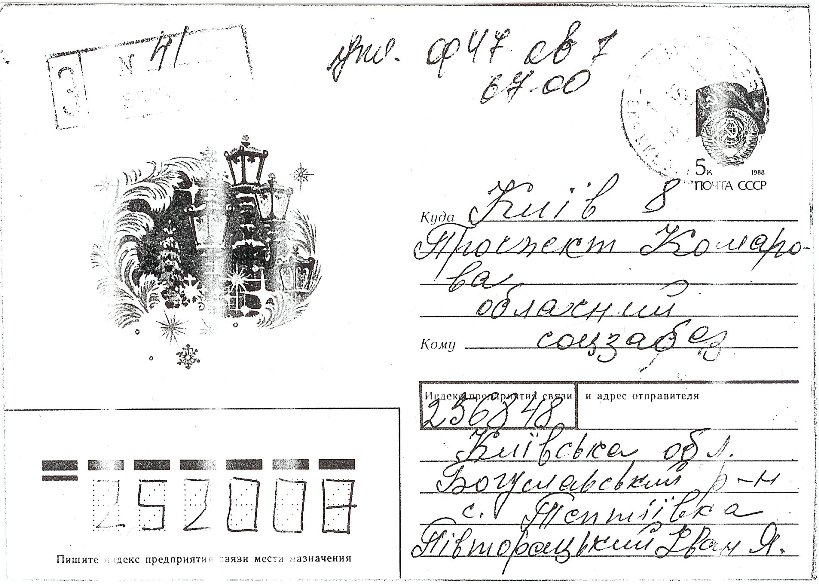 З N 41
ф 47 ов 7
67-00
5к 1988
ПОЧТА СССР
Куда Київ 8
Проспект Комаро-
ва
обласний
Кому соцзабез
Индекс предприятия связи и адрес отправителя
256848
Київська обл.
Богуславський р-н
с. Тептіївка
Півторацький Іван Я.
252007
Пишите индекс предприятия связи места назначения